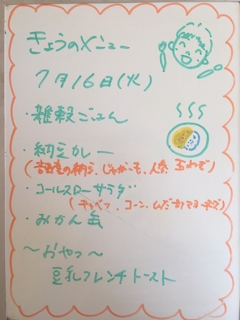 きょうのメニュー
7月16日(火)
・雑穀ごはん
・納豆カレー
(納豆、じゃがいも、人参、玉ねぎ)
・コールスローサラダ
(キャベツ、コーン、
・みかん缶
〜おやつ〜
豆乳フレンチトースト